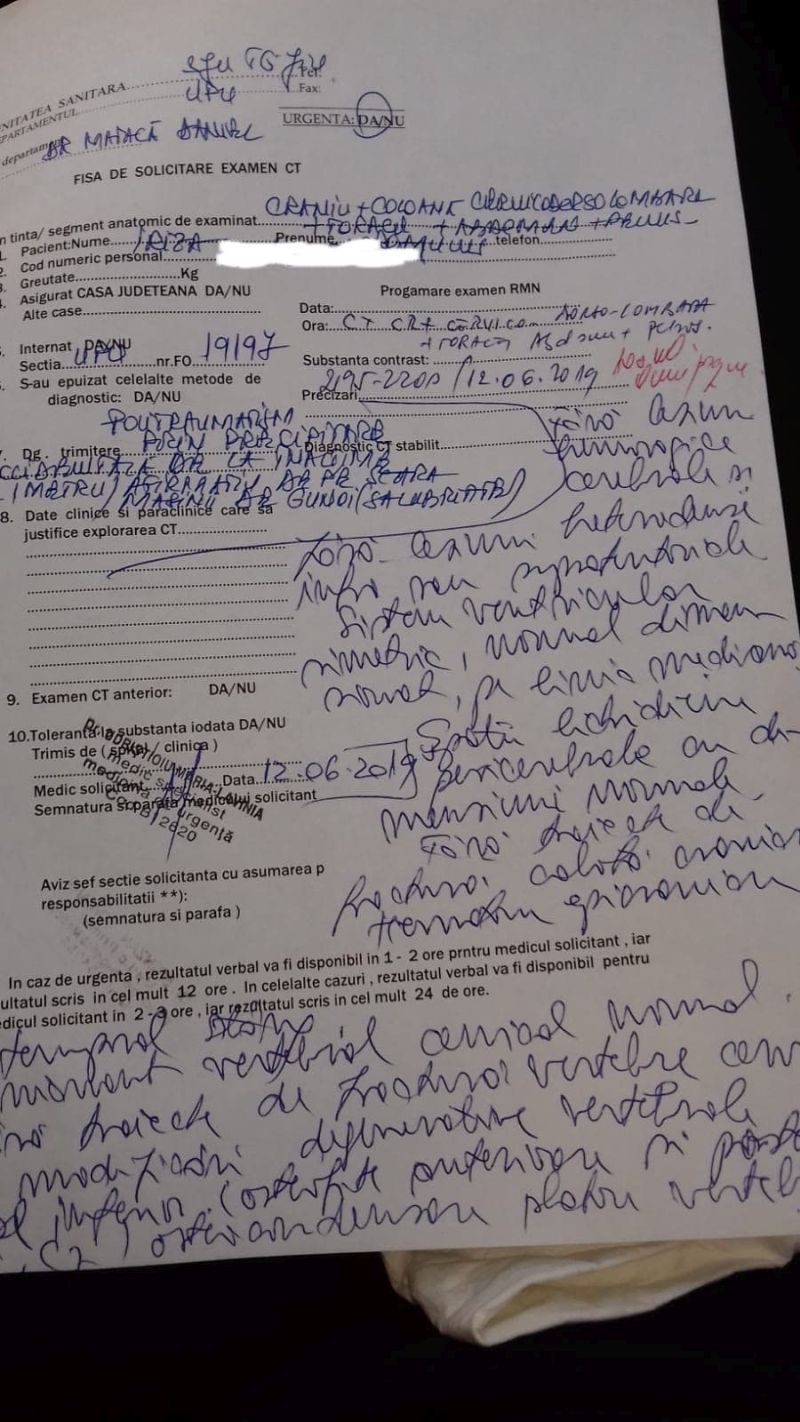 NITATEA SANITARA
UPU
Fax:
EPARTAMENTUL
URGENTA: DA/NU
departam
DR MATACĂ DANIEL
FISA DE SOLICITARE EXAMEN CT
CRANIU + COLOANĂ CERVICODORSOLOMBARĂ
n tinta/ segment anatomic de examinat
+ TORACE + ABDOMEN + PELVIS
Pacient:Nume Prenume telefon
2. Cod numeric personal
3. Greutate Kg
4. Asigurat CASA JUDETEANA DA/NU Progamare examen RMN
Alte case Data:
Ora: CT CR + CERVICO DORSO-LOMBARĂ
+ TORACE Abdomen + Pelvis.
5. Internat DA/NU
Sectia UPU nr.FO 19197 Substanta contrast:
6. S-au epuizat celelalte metode de 2195-2200 / 12.06.2019
diagnostic: DA/NU Precizari
POLITRAUMATISM
PRIN PRECIPITARE
7. Dg. trimitere Diagnostic CT stabilit
ACCIDENTALĂ DE LA ÎNĂLȚIME
(METRU) AFIRMATIV DE PE SCARA
MAȘINII DE GUNOI (SALUBRITATE)
8. Date clinice si paraclinice care sa
justifice explorarea CT
Fără leziuni
hemoragice
cerebrale și
Fără leziuni heterodense
infra sau supratentoriale
Sistem ventricular
simetric, normal dimen
sionat, pe linia mediană
9. Examen CT anterior: DA/NU
10.Toleranta la substanta iodata DA/NU
Trimis de ( spital / clinica )
Spatii lichidiene
pericerebrale cu di-
mensiuni normale
Medic solicitant Data 12.06.2019
Semnatura si parafa medicului solicitant
medic specialist
medicină de urgență
Fără traiecte de
fractură calotă cranian
Hematom epicranian
Aviz sef sectie solicitanta cu asumarea p
responsabilitatii **):
(semnatura si parafa )
In caz de urgenta , rezultatul verbal va fi disponibil in 1 - 2 ore prntru medicul solicitant , iar
ultatul scris in cel mult 12 ore . In celelalte cazuri , rezultatul verbal va fi disponibil pentru
edicul solicitant in 2 - 3 ore , iar rezultatul scris in cel mult 24 de ore.
temporal stang
vertebral cervical normal.
traiecte de fractură vertebre cerv
modificări degenerative vertebrale
inferior (osteofite anterioare și post
C7) osteocondensare platou verteb